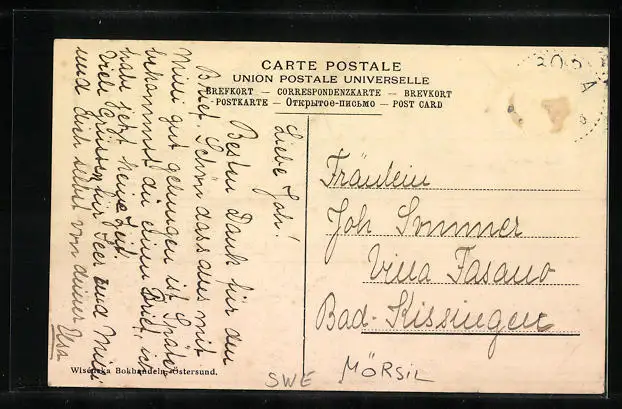 CARTE POSTALE
UNION POSTALE UNIVERSELLE
BREFKORT — CORRESPONDENZKARTE — BREVKORT
POSTKARTE — Открытое-письмо — POST CARD
Liebe Joh!
Besten Dank für den
Brief. Schön dass aus mit
Mimi gut gelungen ist. Später
bekommst du einen Brief, ich
habe jetzt keine Zeit.
Viele Grüsse für Peer und Mimi
und Dich selbst von deiner Usa
Fräulein
Joh Sommer
Villa Fasano
Bad-Kissingen
Wisénska Bokhandeln, Östersund.
SWE MÖRSIL